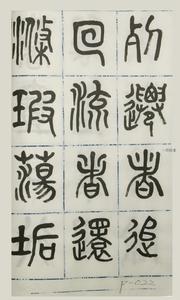 死遷者追
回流者還
滌瑕蕩垢
P-022